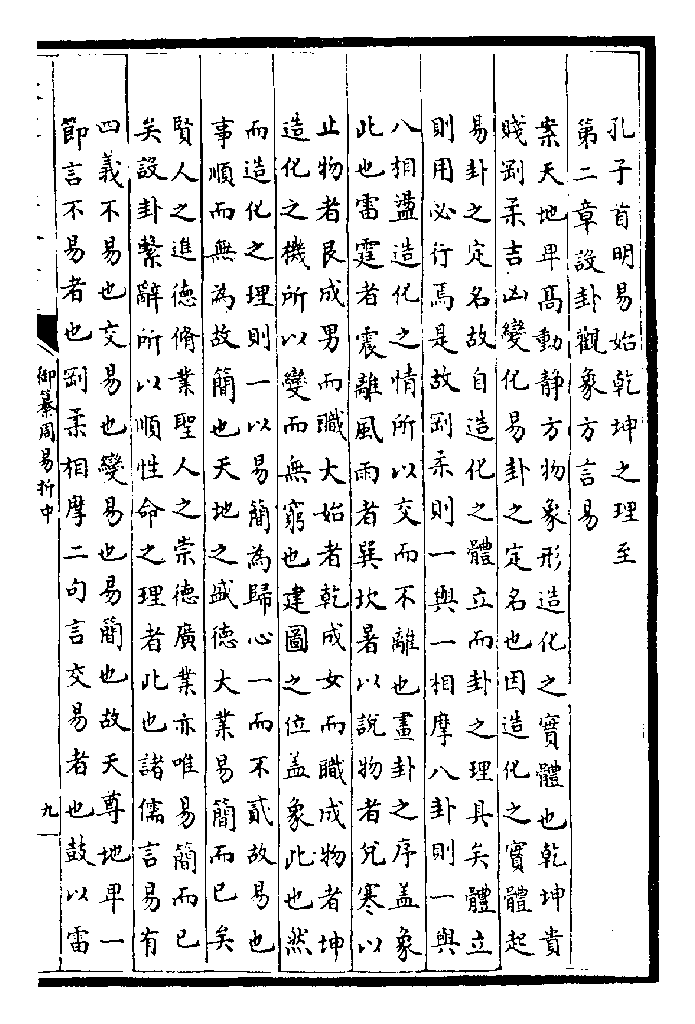 孔子首明易始乾坤之理至
第二章設卦觀象方言易
案天地卑髙動靜方物象形造化之實體也乾坤貴
賤剛柔吉凶變化易卦之定名也因造化之實體起
易卦之定名故自造化之體立而卦之理具矣體立
則用必行焉是故剛柔則一與一相摩八卦則一與
八相盪造化之情所以交而不離也畫卦之序盖象
此也雷霆者震離風雨者巽坎暑以說物者兌寒以
止物者艮成男而職大始者乾成女而職成物者坤
造化之機所以變而無窮也建圖之位盖象此也然
而造化之理則一以易簡為歸心一而不貳故易也
事順而無為故簡也天地之盛德大業易簡而已矣
賢人之進德脩業聖人之崇德廣業亦唯易簡而已
矣設卦繫辭所以順性命之理者此也諸儒言易有
四義不易也交易也變易也易簡也故天尊地卑一
節言不易者也剛柔相摩二句言交易者也鼓以雷
御纂周易折中
九